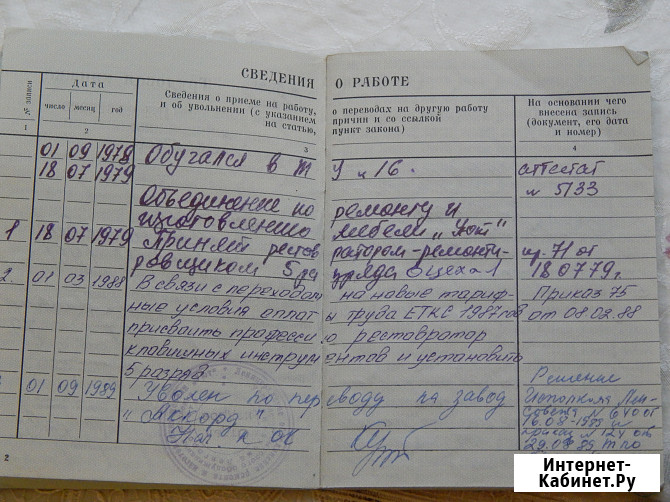 СВЕДЕНИЯ О РАБОТЕ
№ записи
Дата
число месяц год
Сведения о приеме на работу, о переводах на другую работу
и об увольнении (с указанием причин и со ссылкой
на статью, пункт закона)
На основании чего
внесена запись
(документ, его дата
и номер)
1 2 3 4
01 09 1978 Обучался в ТУ №16. аттестат
18 07 1979 № 5133
Объединение по ремонту и
изготовлению мебели „Уют"
1 18 07 1979 Принят реставратором-ремонти- пр. 71 от
ровщиком 5 разряда цеха 1 18.07.79г.
2. 01 03 1988 В связи с переходом на новые тариф- Приказ 75
ные условия оплаты труда ЕТКС 1987 год от 08.02.88
присвоить профессию реставратор
клавишных инструментов и установить
5 разряд
01 09 1989 Уволен по переводу на завод Решение
„Аккорд" Исполкома Лен-
Совета № 640 от
16.08-1989 и
приказ № 124 от
29.08.89,
2
Интернет-
Кабинет.Ру